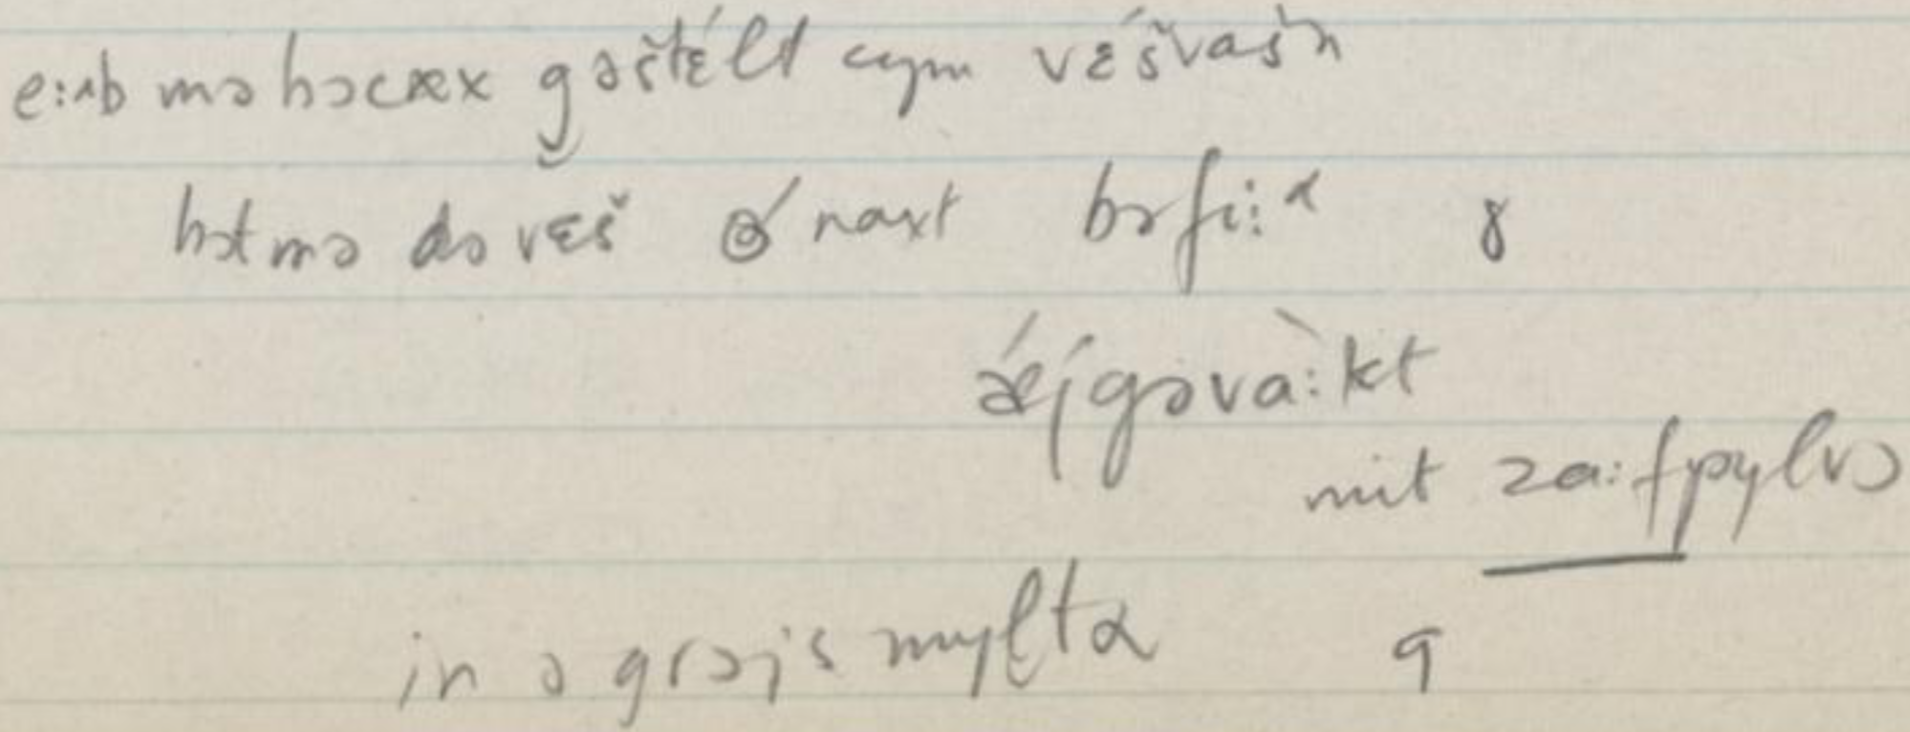 e:ʌb mə hɔcæx gəštɛ́lt cym vɛ́švašn
hɔt mə də vɛš ə́ naxt bəfi:α 8
ǽjgəvà:kt
mit za:fpylvə
in ə grɔjs myltα 9